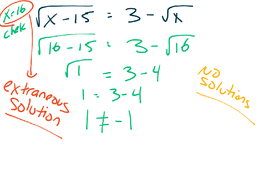 x=16
chek
√x-15 = 3 - √x
√16-15 = 3 - √16
√1 = 3-4
1 = 3-4
1 ≠ -1
extraneous
Solution
NO
Solutions